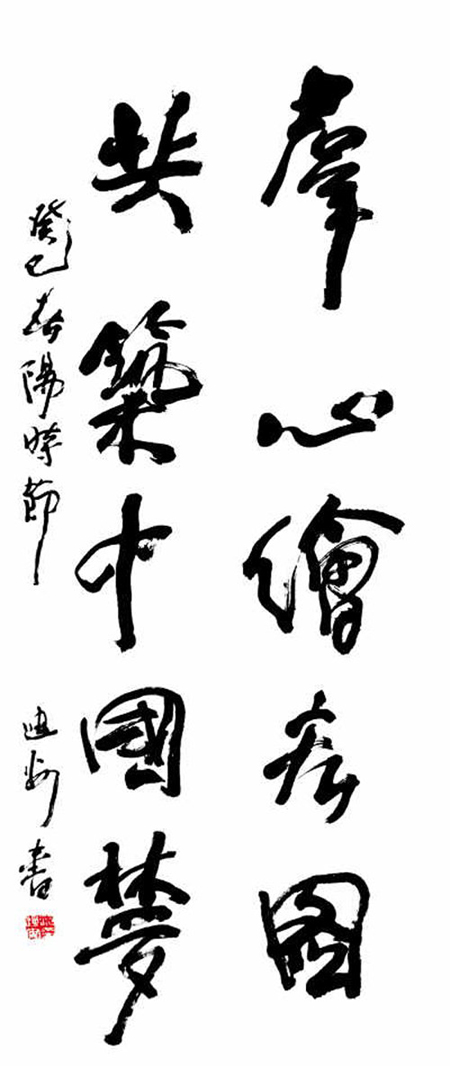 羣心繪春圖
共築中國夢
癸巳春陽時節
書